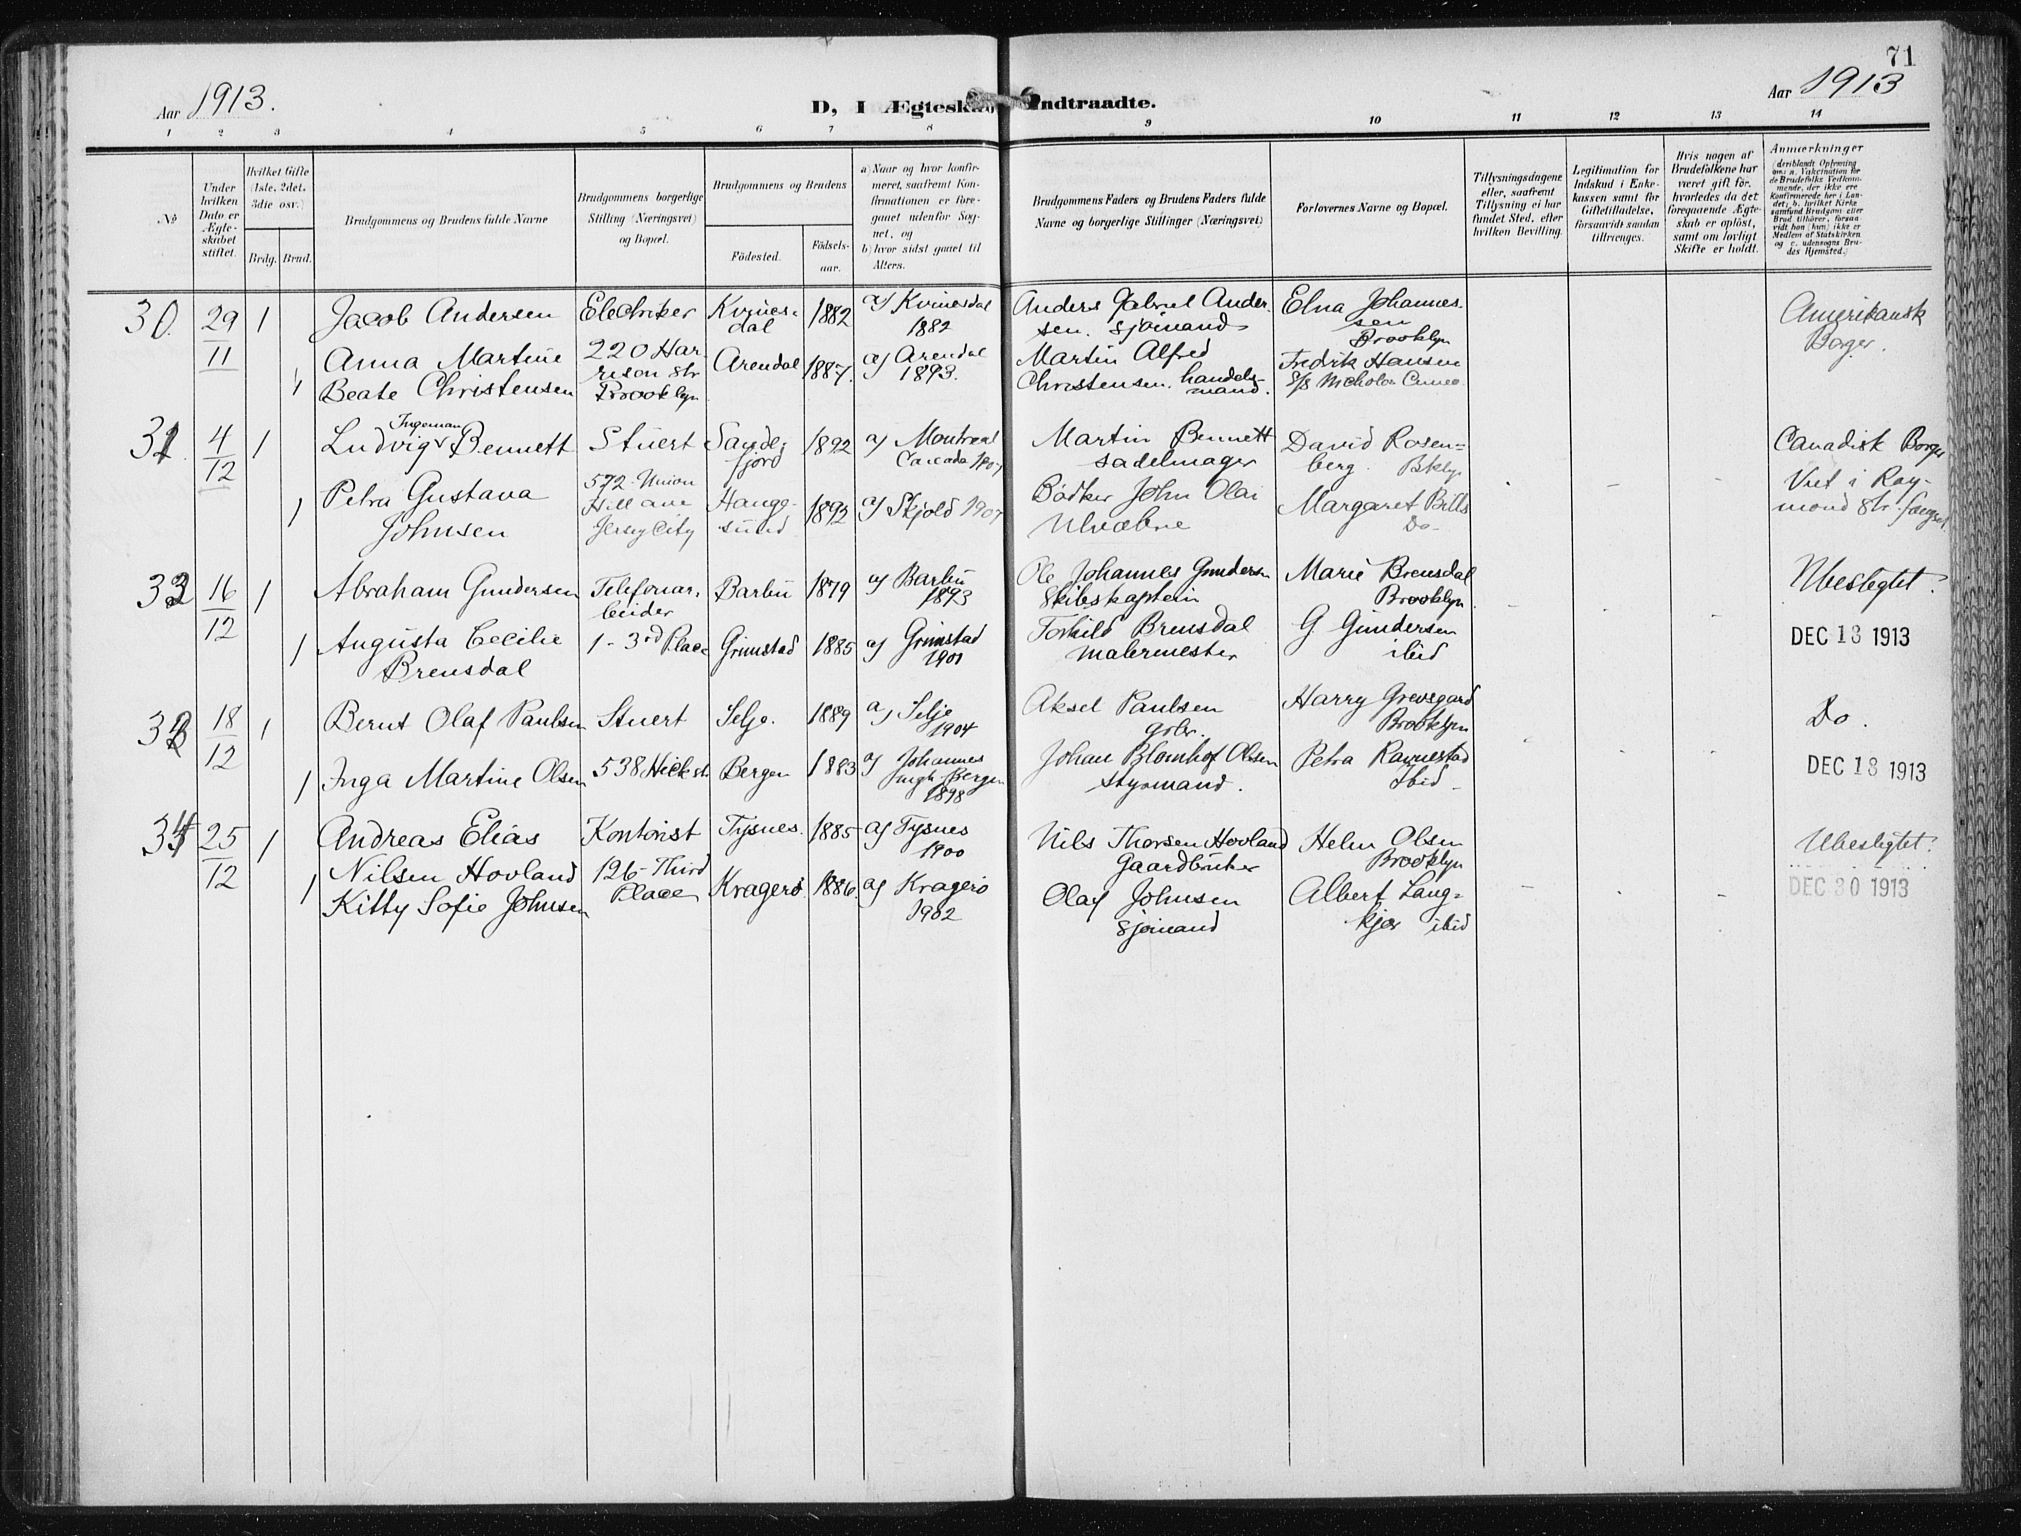 71
Aar 1913.
D, I Ægteskab Indtraadte.
Aar 1913
1 2 3 4 5 6 7 8 9 10 11 12 13 14
No
Under hvilken Dato er Ægteskabet stiftet.
Hvilket Gifte (1ste, 2det, 3die osv.)
Brdg. Brud.
Brudgommens og Brudens fulde Navne
Brudgommens borgerlige Stilling (Næringsvei) og Bopæl.
Brudgommens og Brudens
Födested.
Födselsaar.
a) Naar og hvor konfirmeret, saafremt Konfirmationen er foregaaet udenfor Sognet, og
b) hvor sidst gaaet til Alters.
Brudgommens Faders og Brudens Faders fulde Navne og borgerlige Stillinger (Næringsvei)
Forlovernes Navne og Bopæl.
Tillysningsdagene eller, saafremt Tillysning ei har fundet Sted, efter hvilken Bevilling.
Legitimation for Indskud i Enkekassen samt for Giftetilladelse, forsaavidt saadan tiltrænges.
Hvis nogen af Brudefolkene har været gift för, hvorledes da det foregaaende Ægteskab er oplöst, samt om lovligt Skifte er holdt.
Anmærkninger
30. 29/11 1 Jacob Andersen Electriker Kvinesdal 1882 a) Kvinesdal 1882 Anders Gabriel Andersen. Sjömand Elna Johannessen Brooklyn Amerikansk Borger.
1 Anna Martine Beate Christensen 220 Harrison str Brooklyn Arendal 1887. a) Arendal 1893. Martin Alfred Christensen. handelsmand. Fredrik Hansen
31. 4/12 1 Ludvig Ingeman Bennett Stuert Sandefjord 1892 a) Montreal Canada 1907 Martin Bennett sadelmager David Rosenberg. Bklyn Canadisk Borger
1 Petra Gustava Johnsen 572-Union Hill ave Jersey City Haugesund 1892 a) Skjold 1907 Bödker John Olai Margaret Bills Do- Viet i Raymond Str. fængsel
32 16/12 1 Abraham Gundersen Telefonarbeider Barbu 1879 a) Barbu 1893 Ole Johannes Gundersen Skibskaptein Marie Brensdal Brooklyn. Ubeslegtet.
1 Augusta Cecilie Brensdal 1-3rd Place Grimstad 1885 a) Grimstad 1901 Torkild Brensdal malermester G. Gundersen ibid DEC 13 1913
33 18/12 1 Bernt Olaf Paulsen Stuert Selje. 1889 a) Selje 1904 Aksel Paulsen gbr. Harry Grevsgard Brooklyn Do.
1 Inga Martine Olsen 538 Hick st. Bergen 1883 a) Johannes Bergen 1898 Johan Blomhof Olsen styrmand. Petra Ramestad Ibid DEC 18 1913
34 25/12 1 Andreas Elias Nilsen Hovland Kontorist Tysnes. 1885 a) Tysnes 1900 Nils Thorsen Hovland Gaardbruker Helen Olsen Brooklyn Ubeslegtet.
1 Kitty Sofie Johnsen 126-Third Place Kragerö 1886. a) Kragerö 1902 Olaf Johnsen Sjömand Albert Langkjær ibid DEC 30 1913